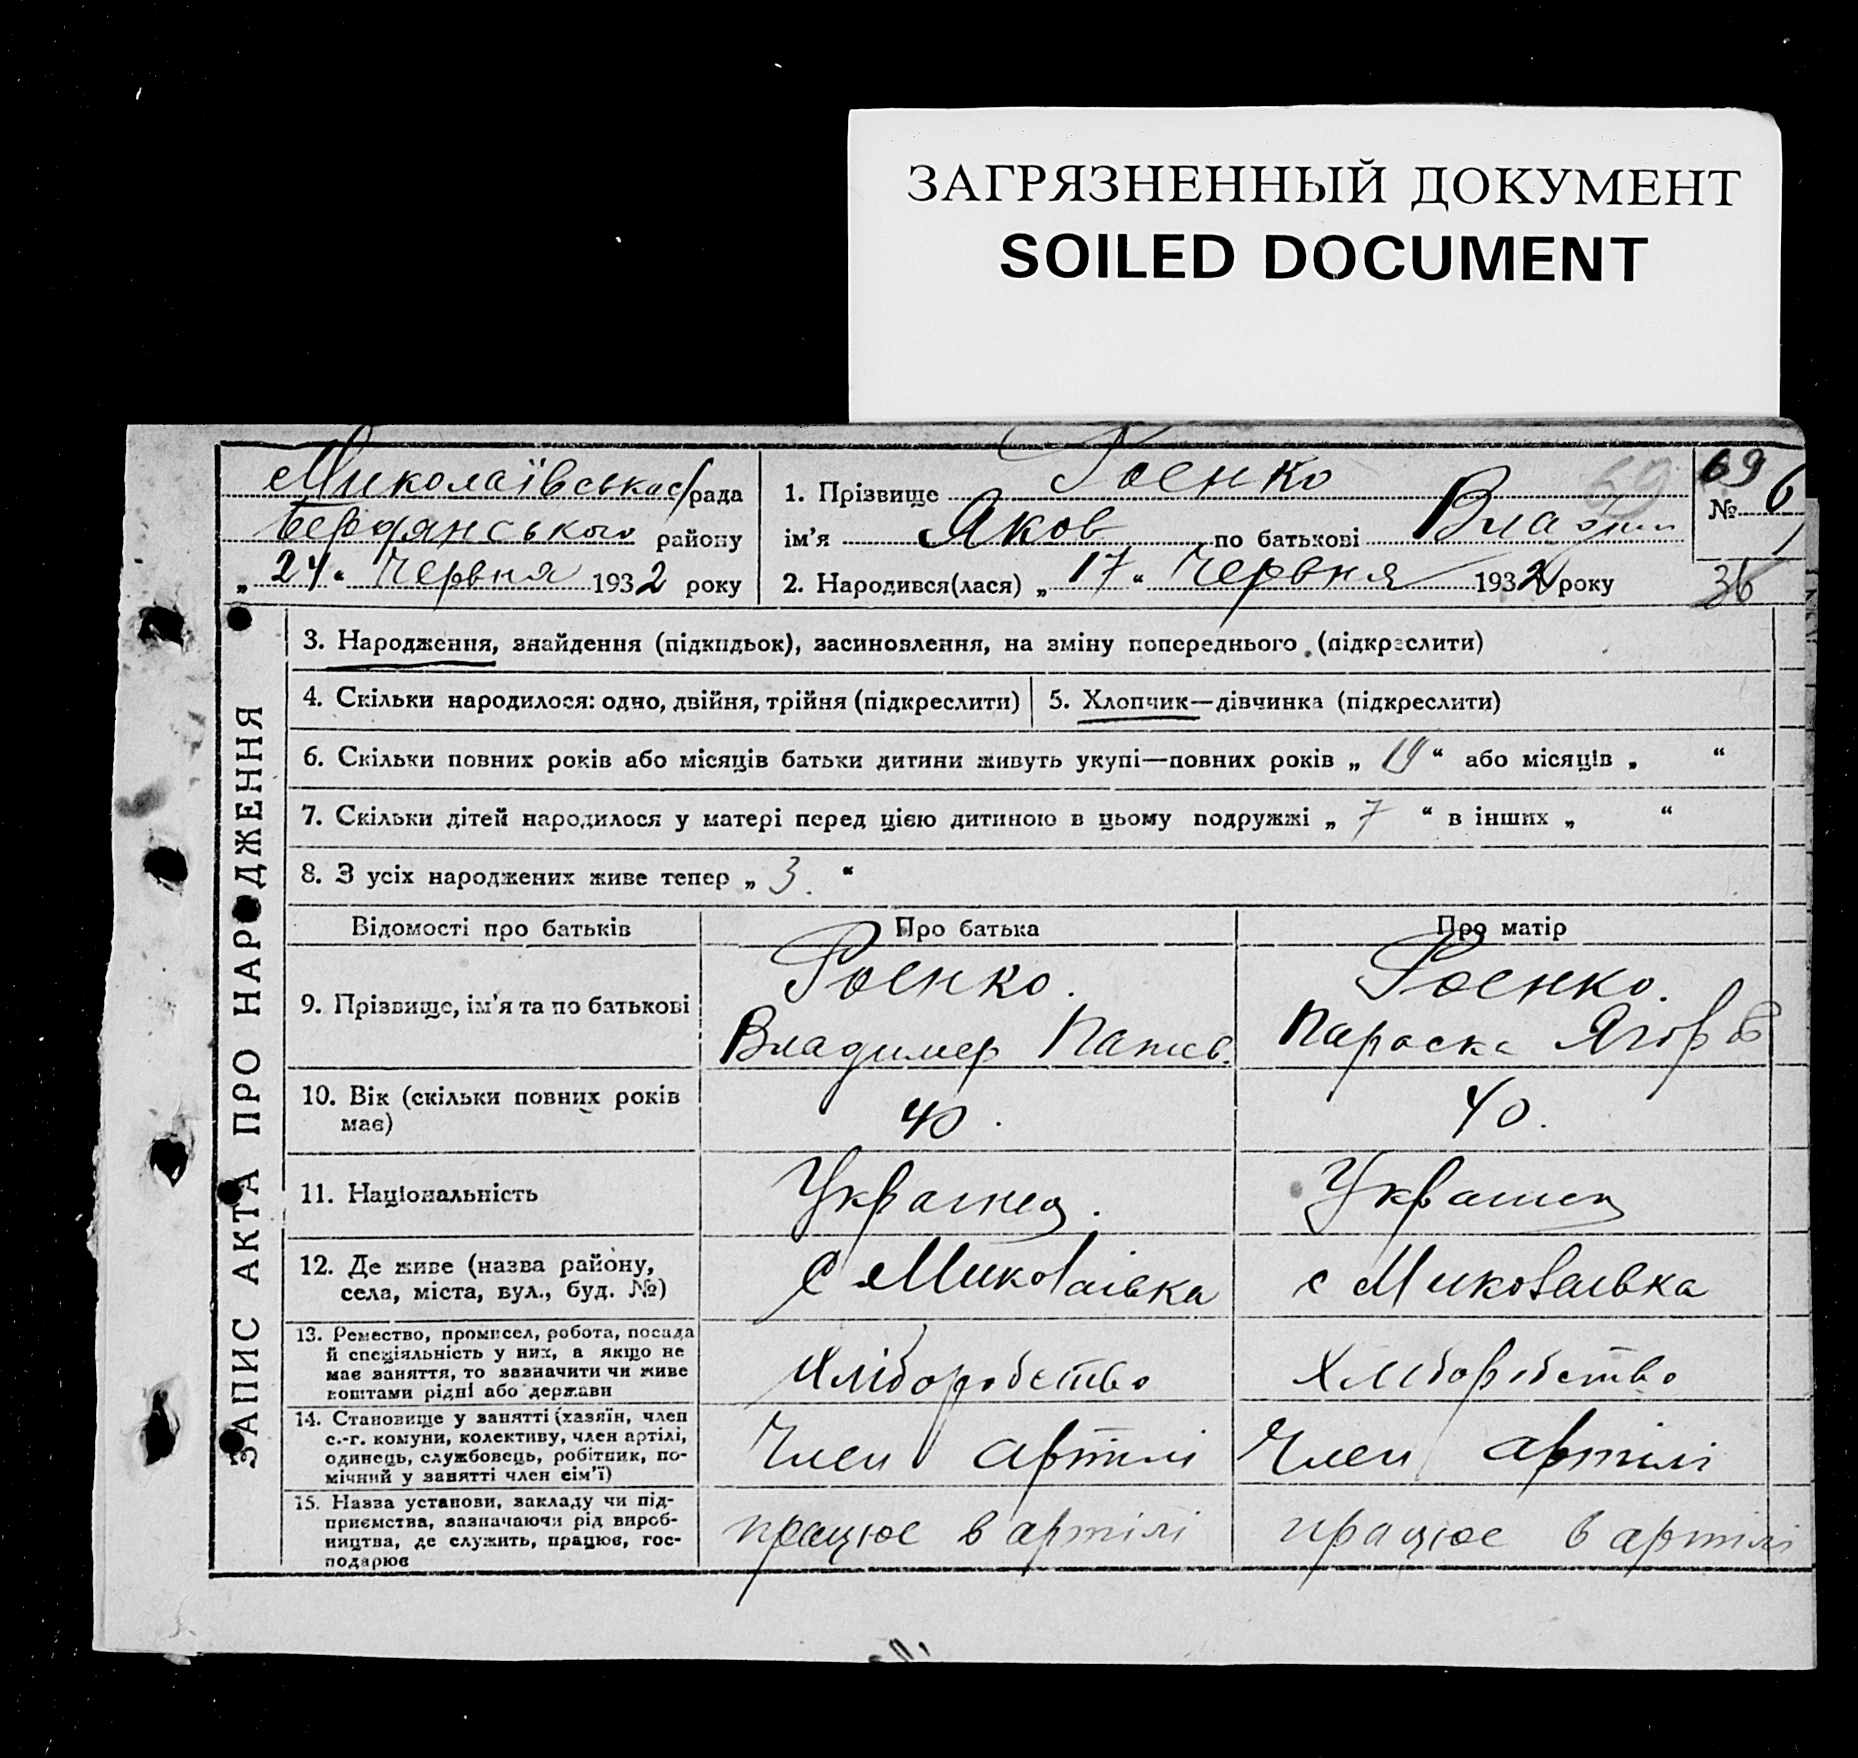 ЗАГРЯЗНЕННЫЙ ДОКУМЕНТ
SOILED DOCUMENT
Миколаївська с/рада
Бердянського району
„ 24 “ Червня 1932 року
1. Прізвище Роенко
ім’я Яков по батькові Владим
2. Народився(лася) „ 17 “ Червня 1932 року
69
69
№ 6
36
ЗАПИС АКТА ПРО НАРОДЖЕННЯ
3. Народження, знайдення (підкидьок), засиновлення, на зміну попереднього (підкреслити)
4. Скільки народилося: одно, двійня, трійня (підкреслити)
5. Хлопчик—дівчинка (підкреслити)
6. Скільки повних років або місяців батьки дитини живуть укупі—повних років „ 19 “ або місяців „ “
7. Скільки дітей народилося у матері перед цією дитиною в цьому подружжі „ 7 “ в інших „ “
8. З усіх народжених живе тепер „ 3. “
Відомості про батьків
Про батька
Про матір
9. Прізвище, ім’я та по батькові
Роенко.
Владимер
Роенко.
Параска Ягоров
10. Вік (скільки повних років
має)
40.
40.
11. Національність
Українец.
Украинец
12. Де живе (назва району,
села, міста, вул., буд. №)
с Миколаівка
с Миколаівка
13. Ремество, промисел, робота, посада
й спеціяльність у них, а якщо не
має заняття, то зазначити чи живе
коштами рідні або держави
Хліборобство
Хліборобство
14. Становище у занятті (хазяїн, член
с.-г. комуни, колективу, член артілі,
одинець, службовець, робітник, по-
мічний у занятті член сім’ї)
Член артілі
Член артілі
15. Назва установи, закладу чи під-
приємства, зазначаючи рід вироб-
ництва, де служить, працює, гос-
подарює
працює в артілі
працює в артілі